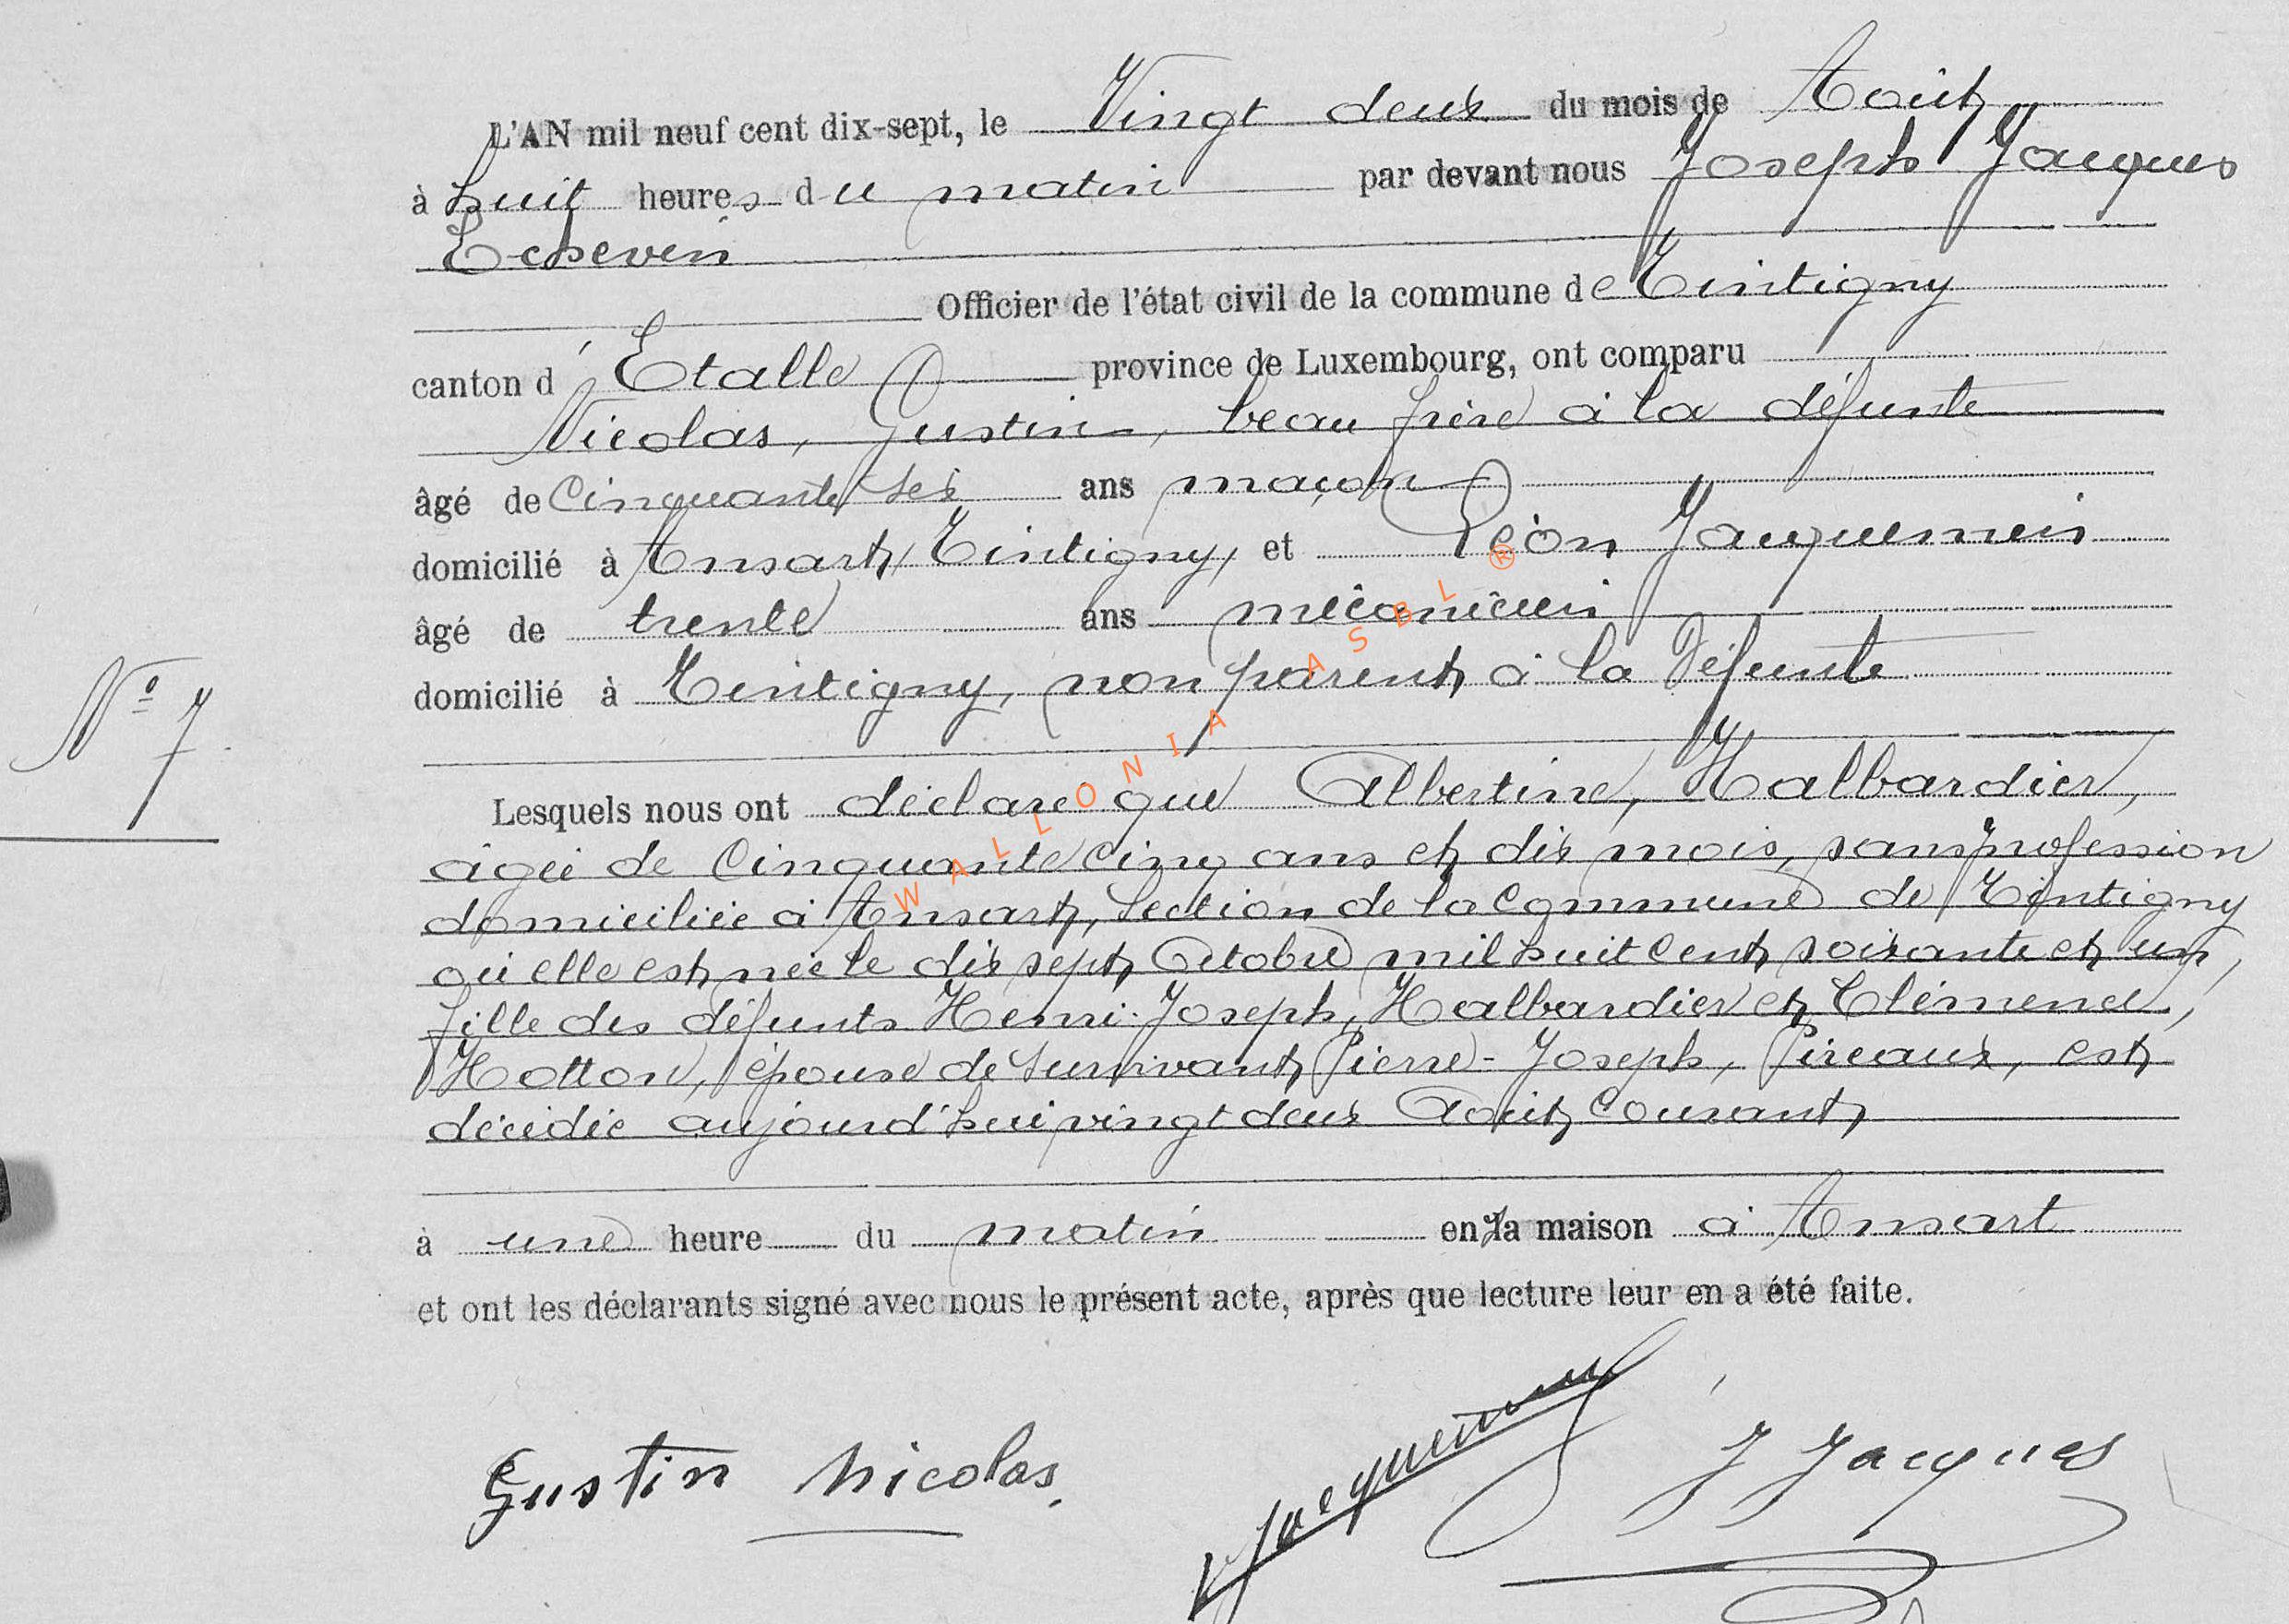 L'AN mil neuf cent dix-sept, le Vingt deux du mois de Août
à huit heures du matin par devant nous Joseph Jacques
Echevin
Officier de l'état civil de la commune de Tintigny
canton d'Etalle province de Luxembourg, ont comparu
Nicolas, Gustin, beau frère à la défunte
âgé de Cinquante six ans maçon
domicilié à Ansart, Tintigny, et Léon Jacquemin
âgé de trente ans mécanicien
domicilié à Tintigny, non parent à la Défunte
N° 7
Lesquels nous ont déclaré que Albertine, Halbardier,
âgée de Cinquante cinq ans et dix mois, sans profession
domiciliée à Ansart, Section de la Commune de Tintigny
où elle est née le dix sept Octobre mil huit Cent soixante et un,
fille des défunts Henri-Joseph, Halbardier et Clémence,
Hotton, épouse de Survivant Pierre-Joseph, Pireaux, est
décédée aujourd'hui vingt deux Août Courant
à une heure du matin en la maison à Ansart
et ont les déclarants signé avec nous le présent acte, après que lecture leur en a été faite.
Gustin Nicolas.
Jacquemin
J Jacques
WALLONIA ASBL ®